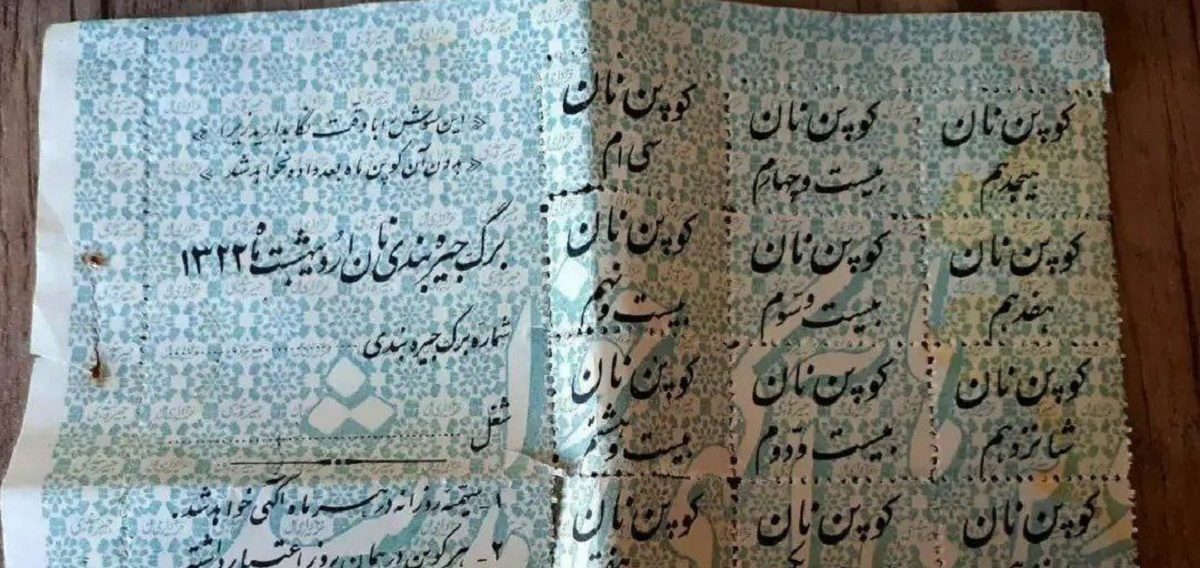 « این سوش را با دقت نگاهدارید زیرا »
« بدون آن کوپن ماه بعد داده نخواهد شد »
برگ جیره بندی نان اردیبهشت ماه ۱۳۲۲
شماره برگ جیره بندی
شغل
۱ـ سهمیه روزانه در هر ماه آگهی خواهد شد.
۲ـ هر کوپن در همان روز اعتبار داشته
کوپن نان
سی ام
کوپن نان
بیست و چهارم
کوپن نان
هیجدهم
کوپن نان
بیست و نهم
کوپن نان
بیست و سوم
کوپن نان
هفدهم
کوپن نان
بیست و هشتم
کوپن نان
بیست و دوم
کوپن نان
شانزدهم
کوپن نان
کوپن نان
کوپن نان